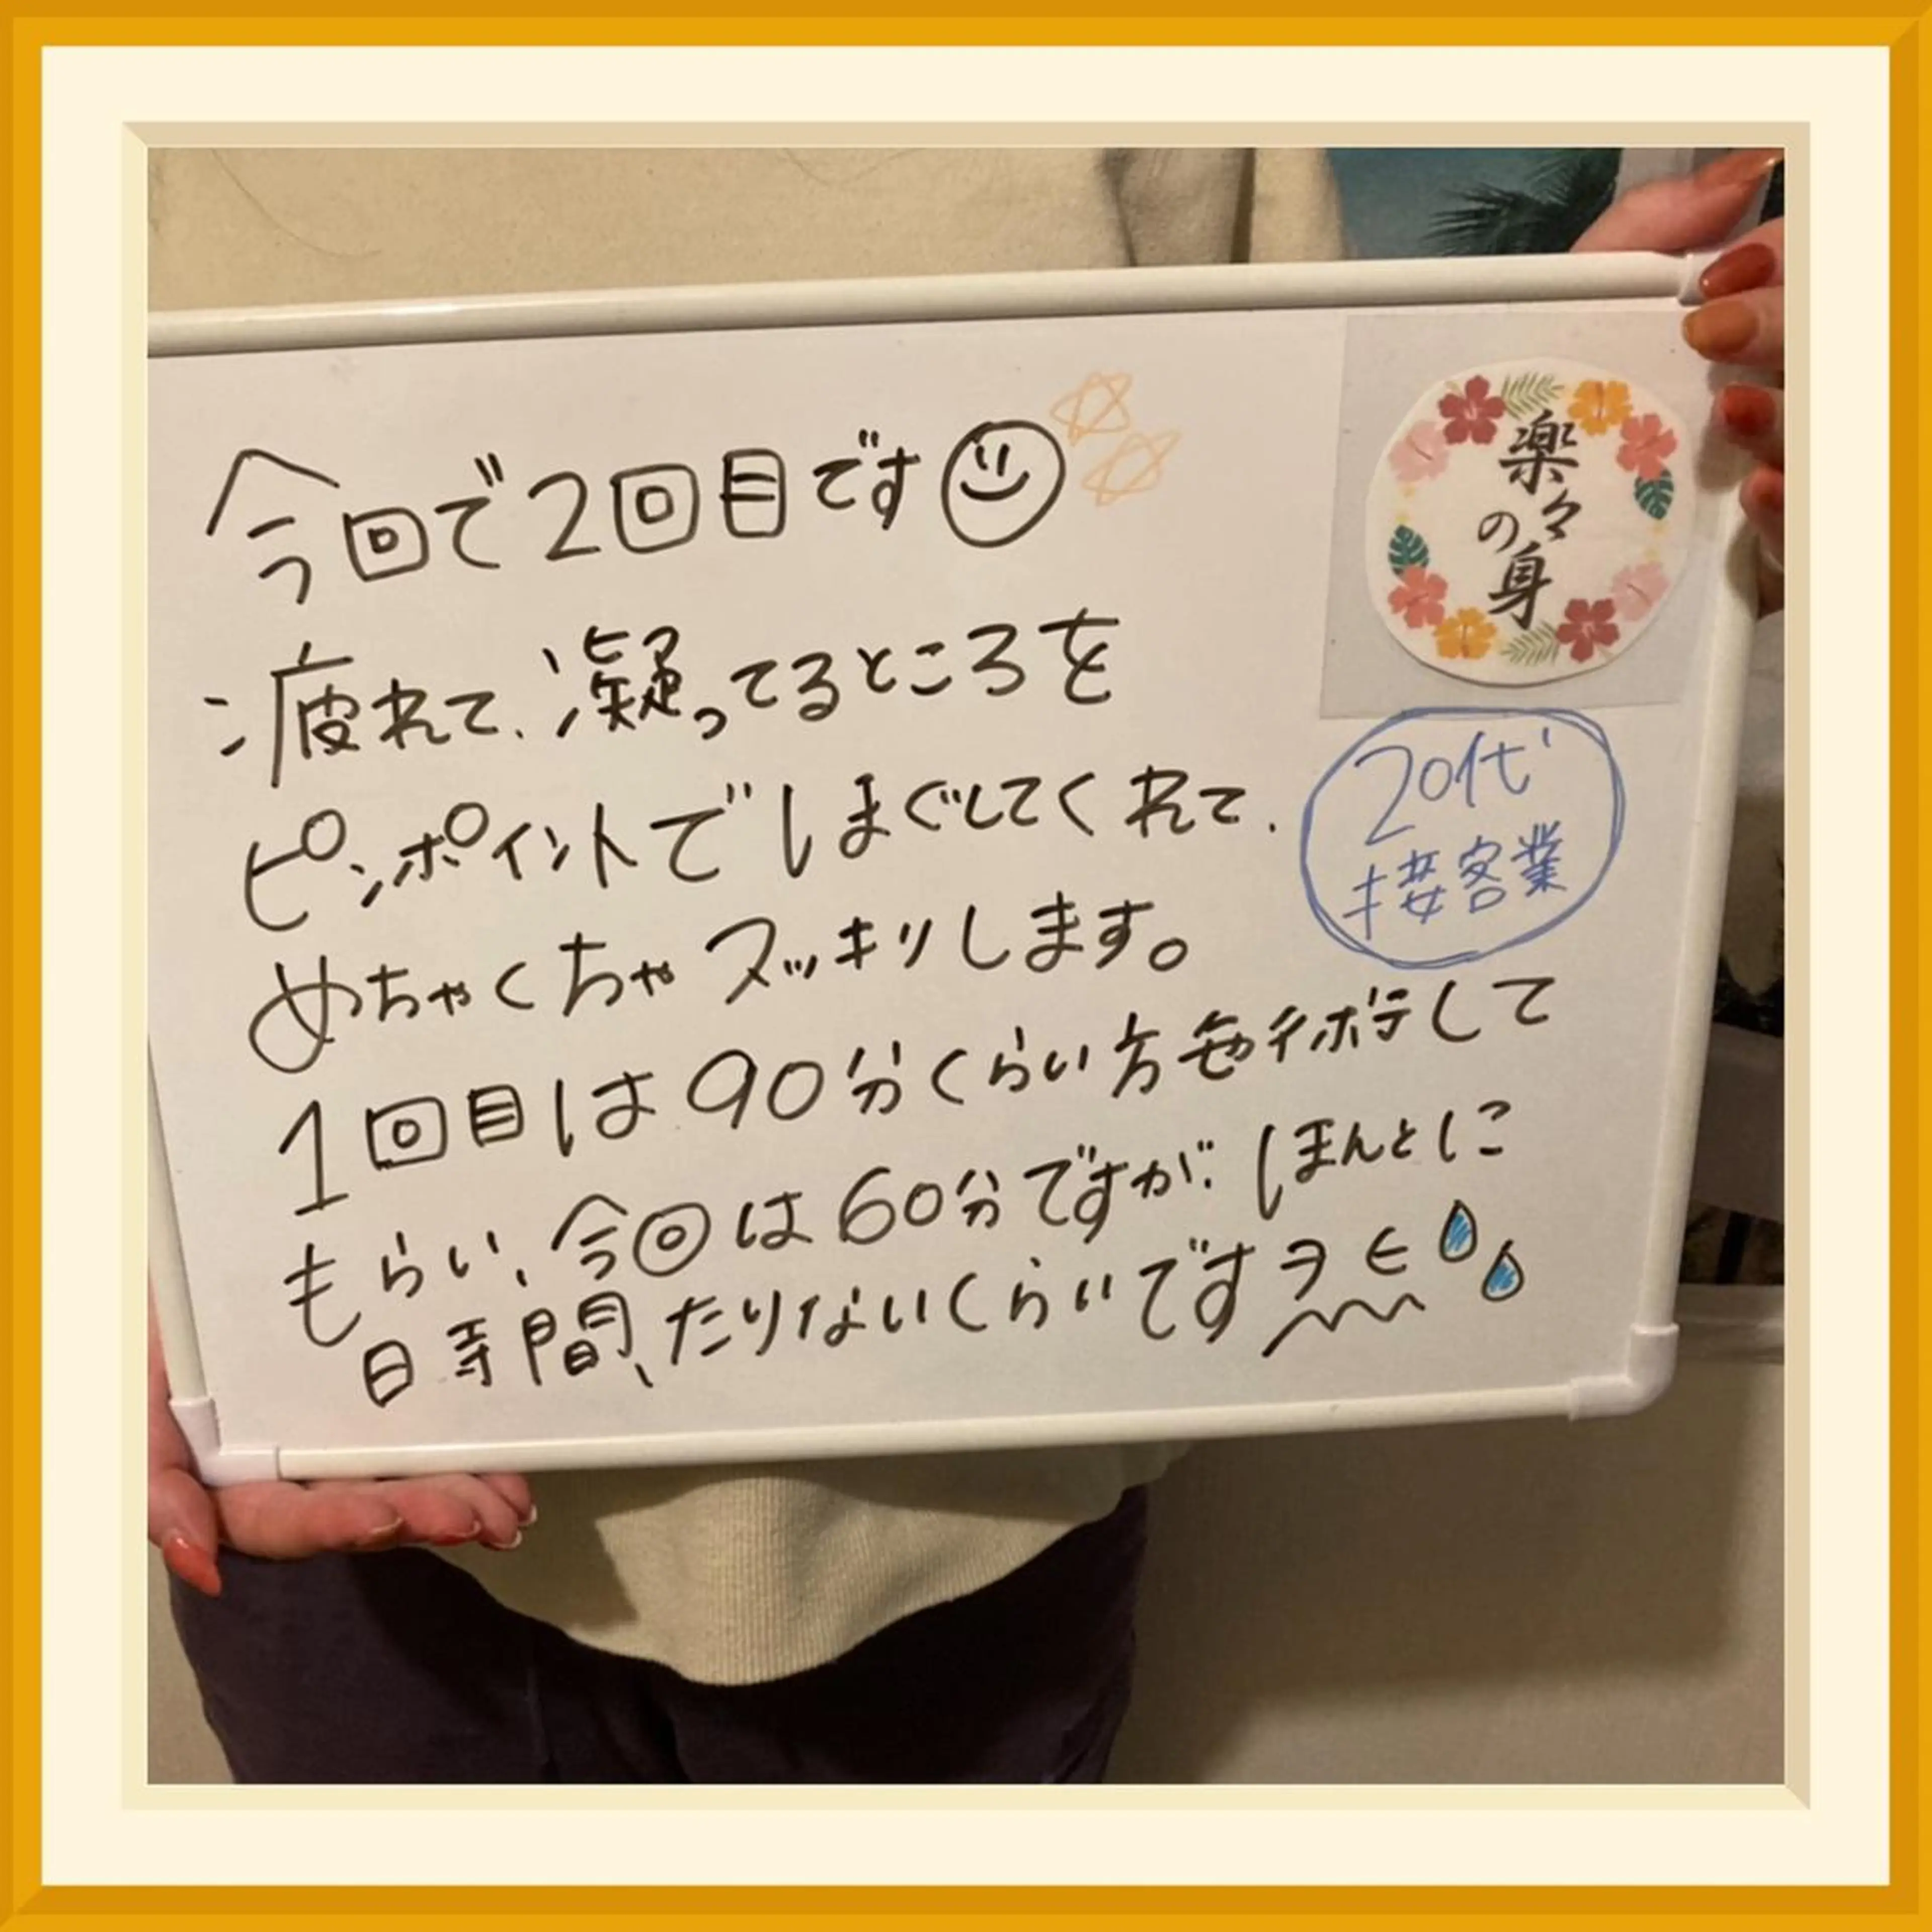 今回で2回目です
疲れて、凝ってるところを
ピンポイントでほぐしてくれて、
めちゃくちゃスッキリします。
1回目は90分くらい施術して
もらい、今回は60分ですが、ほんとに
時間、たりないくらいです
楽々
の
身
20代
接客業